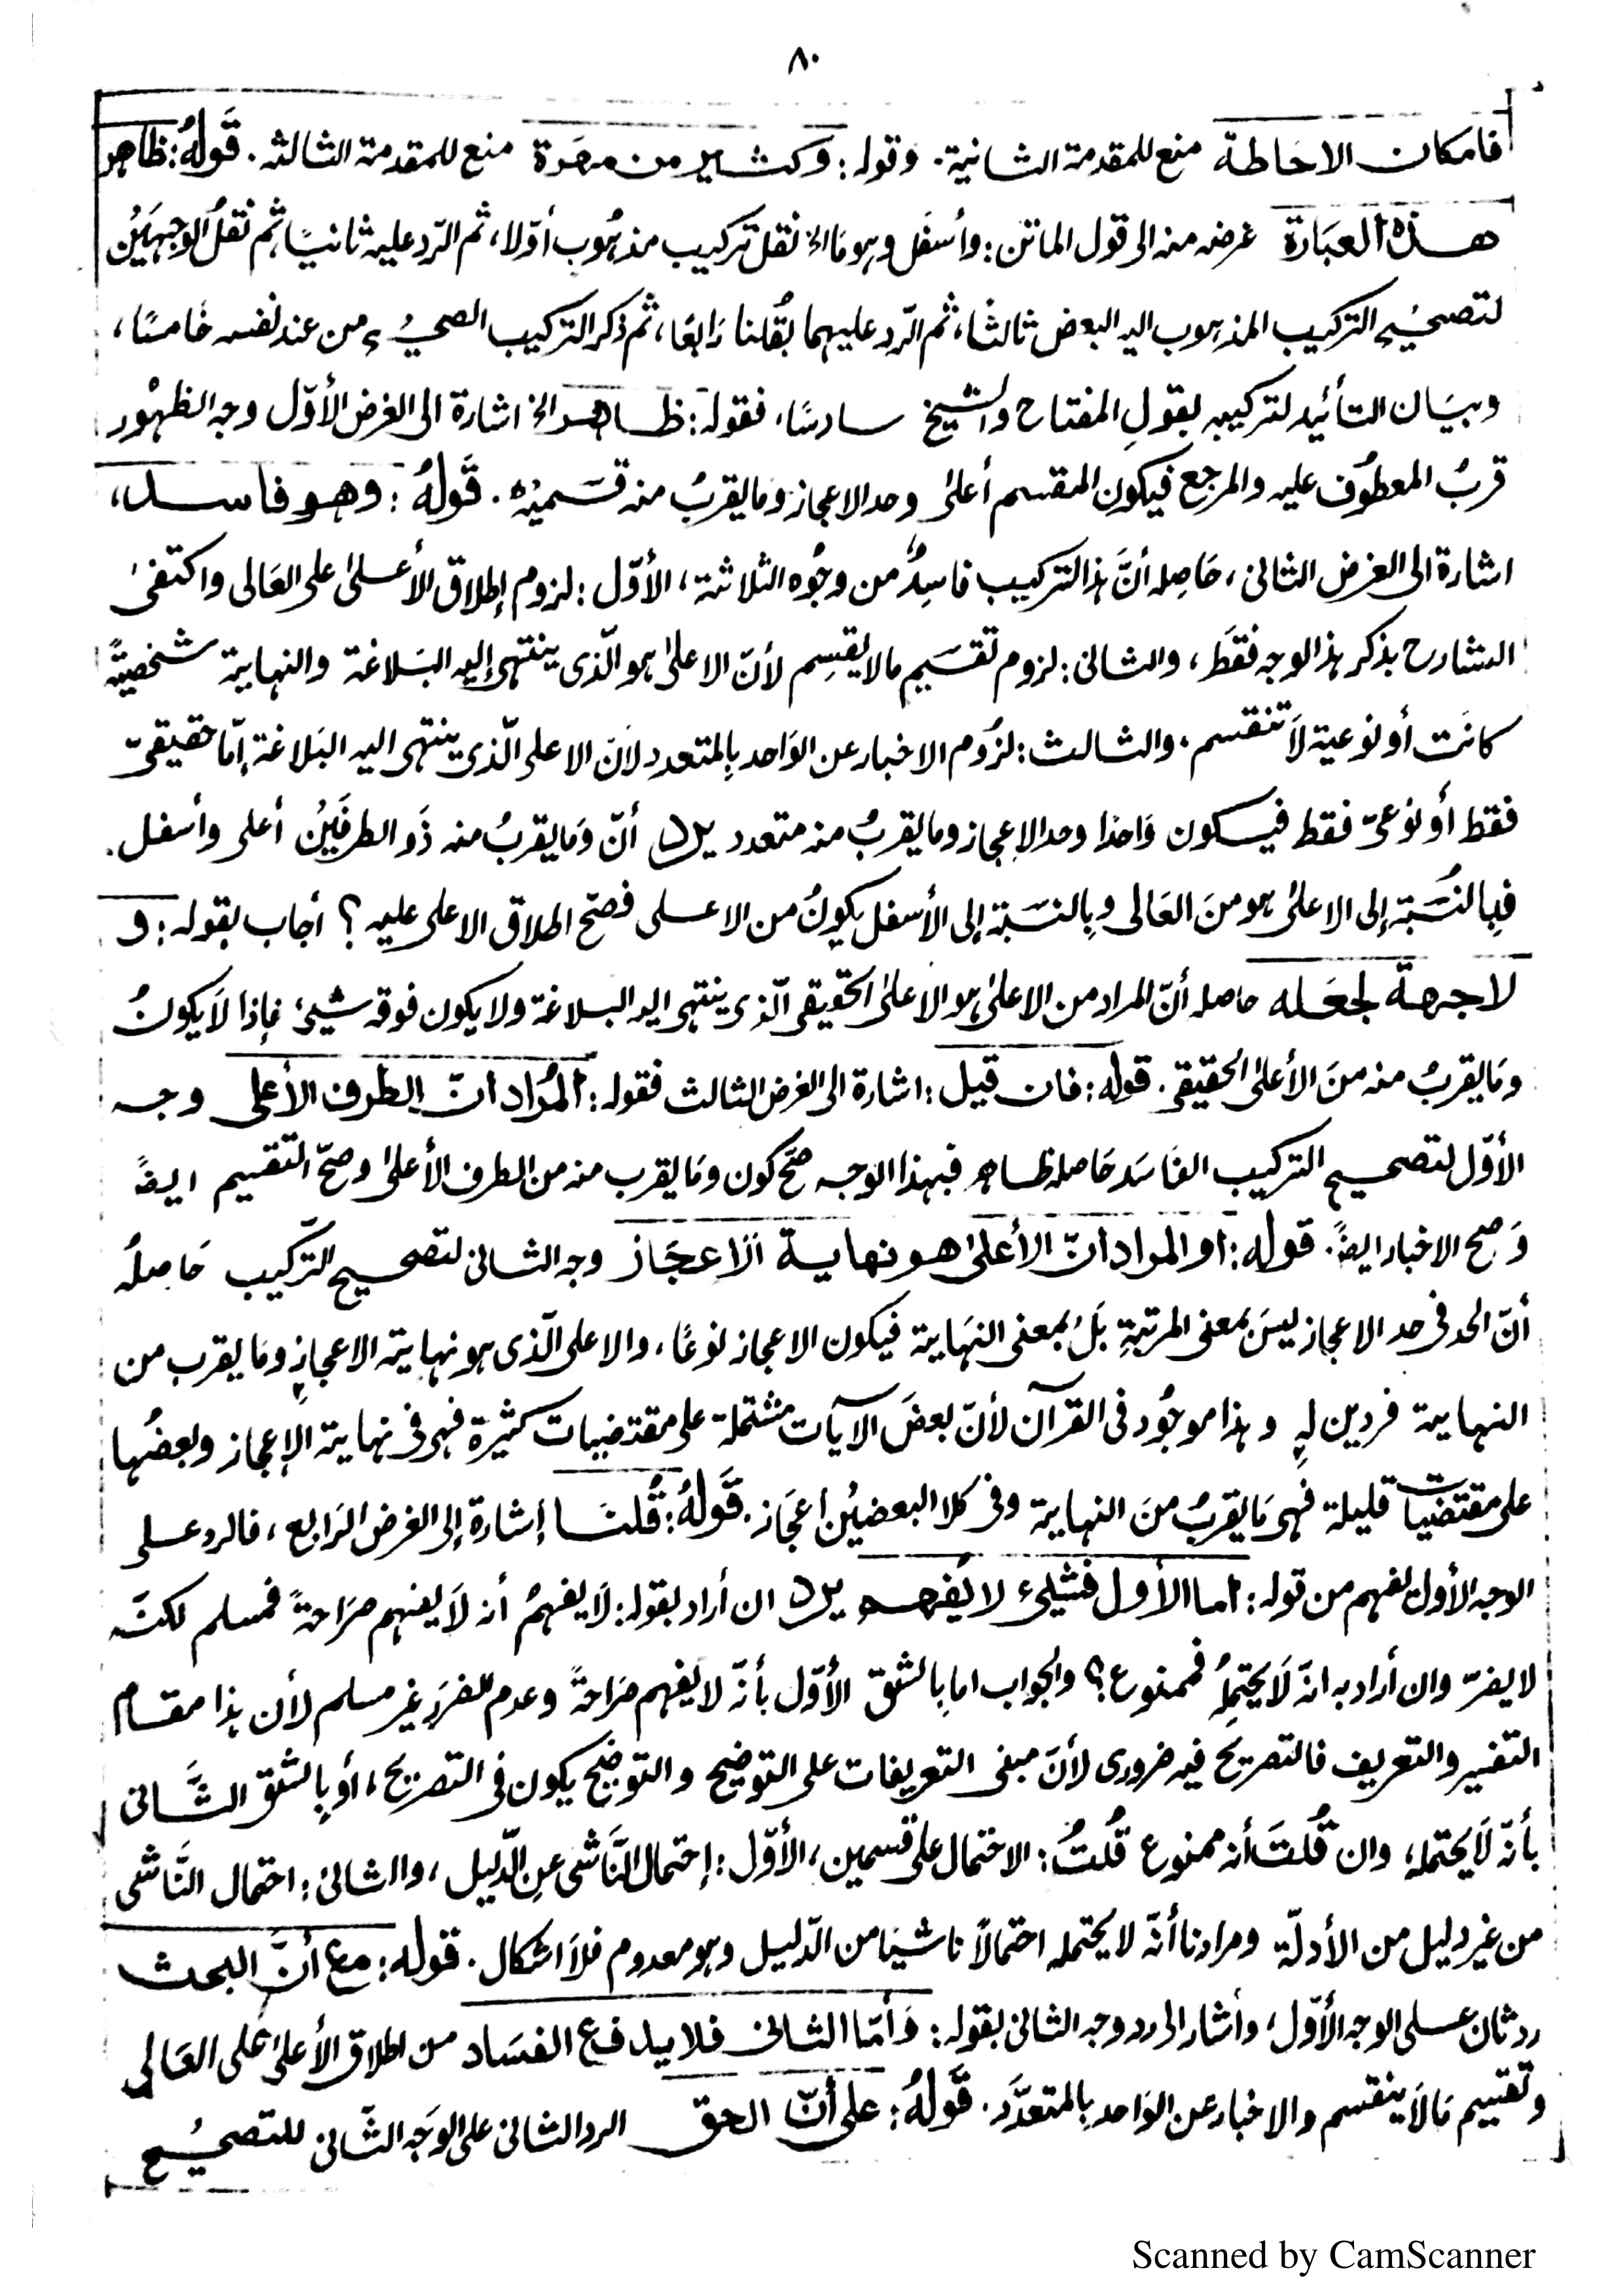 ٨٠
فامكان الاحاطة منع للمقدمة الثانية. وقوله: وكثير من مهرة منع للمقدمة الثالثه. قَولهُ: ظاهر
هذه العبَارة غرضه منه الى قول الماتن: وأسفَل وہومَا الخ نقل تركيب مذہُوب أوّلا، ثم الرّد عليه ثانيًا، ثم نقلُ الوجہَيْن
لتصحيْح التركيب المذہوب اليه البعض ثالثًا، ثم الرّد عليہما بقُلنا رَابعًا، ثم ذكر التركيب الصحيْح من عند نفسه خَامسًا،
وبيَان التأئيد لتركيبه بقولِ المفتاح والشيخ سادسًا، فقوله: ظاهر الخ اشارة الى الغرض الأوّل وجه الظہوْر
قربُ المعطوُف عليه والمرجع فيكون المقسم أعلىٰ وحد الاعجاز ومَا يقربُ منه قسَميْه. قَولهُ: وهو فاسد،
اشارة الى الغرض الثانى، حَاصِله أنَّ ہذا التركيب فاسِدٌ من وجُوه الثلاثة، الأوّل: لزوم إطلاق الأعلىٰ على العَالى واكتفىٰ
الشارح بذكر ہذا الوجه فقطَ، والثانى: لزوم تقسَيم مالا يقسِم لأنّ الاعلىٰ ہو الّذى ينتہى إليه البَلاغة والنہاية شخصيّةً
كانَت أو نوعية لاَ تنقسم. والثالث: لزُوم الاخبار عن الوَاحد بالمتعدد لانّ الاعلى الّذى ينتہى اليه البَلاغة إمّا حقيقىّ
فقط أو نوعىّ فقط فيسكون وَاحدًا وحد الإعجاز وما يقربُ منه متعدد يرد أنّ وَما يقربُ منه ذَو الطرفَيْن أعلى وأسفل.
فبِالنسْبَة إلى الاعلىٰ ہو منَ العَالى وبِالنسَبَة إلى الأسفل يكونُ من الاعلى فصحّ اطلاق الاعلى عليه؟ أجاب بقوله: و
لا جهة لجعَله حاصله أنّ المراد من الاعلىٰ ہو الاعلىٰ الحقيقى الّذى ينتہى اليه البلاغة ولا يكون فوقه شيئ فإذا لاَ يكونُ
ومَا يقربُ منه منَ الأعلىٰ الحقيقى. قوله: فان قيل: اشارة الى الغرض الثالث فقوله: المُراد انّ الطرف الأعلى وجه
الأوّل لتصحيح التركيب الفَاسَد حَاصله ظاہر فبہذا الوجه صحّ كون ومَا يقرب منه من الطرف الأعلىٰ وصحّ التقسيم ايضًا
وَصح الاخبار ايضًا. قوله: او المراد انّ الأعلىٰ هو نهاية الاعجَاز وجه الثانى لتصحيح التَّركيب حَاصلُه
أنّ الحد فى حد الاعجاز ليسَ بمعنى المرتبةِ بَلْ بمعنى النہَاية فيكون الاعجاز نوعًا، والاعلى الّذى ہو نہاية الاعجازِ ومَا يقرب من
النہاية فردين لهٖ وہذا موجُود فى القرآن لأنّ بعضَ الآيَات مشتملة على مقتضيات كثيرة فہى فى نہاية الإعجاز وبعضُہا
على مقتضيَات قليلة فہى مَا يقربُ منَ النہاية وفى كلا البعضيْن اعجَاز. قَولهُ: قُلنَا إشارة إلى الغرض الرَابع، فالرد على
الوجه الأول يفہم من قوله: اما الأول فشيئ لا يُفهم يرد ان أراد بقوله: لاَ يفهمُ أنه لاَ يفہم صرَاحةً فمسلم لكنّه
لا يضرّ وان أراد به انّه لاَ يحتملُه فممنوع؟ والجواب اما بالشقّ الأوّل بأنّه لا يفہم صرَاحةً وعدم الضرر غير مسلم لأن ہذا مقام
التفسير والتعريف فالتصريح فيه ضرورى لأنّ مبنى التعريفات على التوضيح والتوضيح يكون فى التصريح، أو بالشقّ الثَّانى
بأنّه لاَ يحتمله، وان قُلتَ أنه ممنوع قُلتُ: الاحتمال على قسمين، الأوّل: إحتمال النَّاشى عن الدّليل، والثانى: احتمال النَّاشى
من غير دليل من الأدلّة ومرادنا أنّه لا يحتمله احتمالاً ناشيًا من الدّليل وہو معدوم فلاَ اشكال. قوله: مع أنّ البحث
رد ثان على الوجه الأوّل، وأشار الى رد وجه الثانى بقوله: وَأمّا الثانى فلا يدفع الفسَاد من اطلاق الأعلىٰ على العَالى
وتقسيم مَالاَ ينقسم والاخبار عن الوَاحد بالمتعدَّد. قَولهُ: على أنّ الحق الرد الثانى على الوَجه الثَّانى للتصحيْح
Scanned by CamScanner